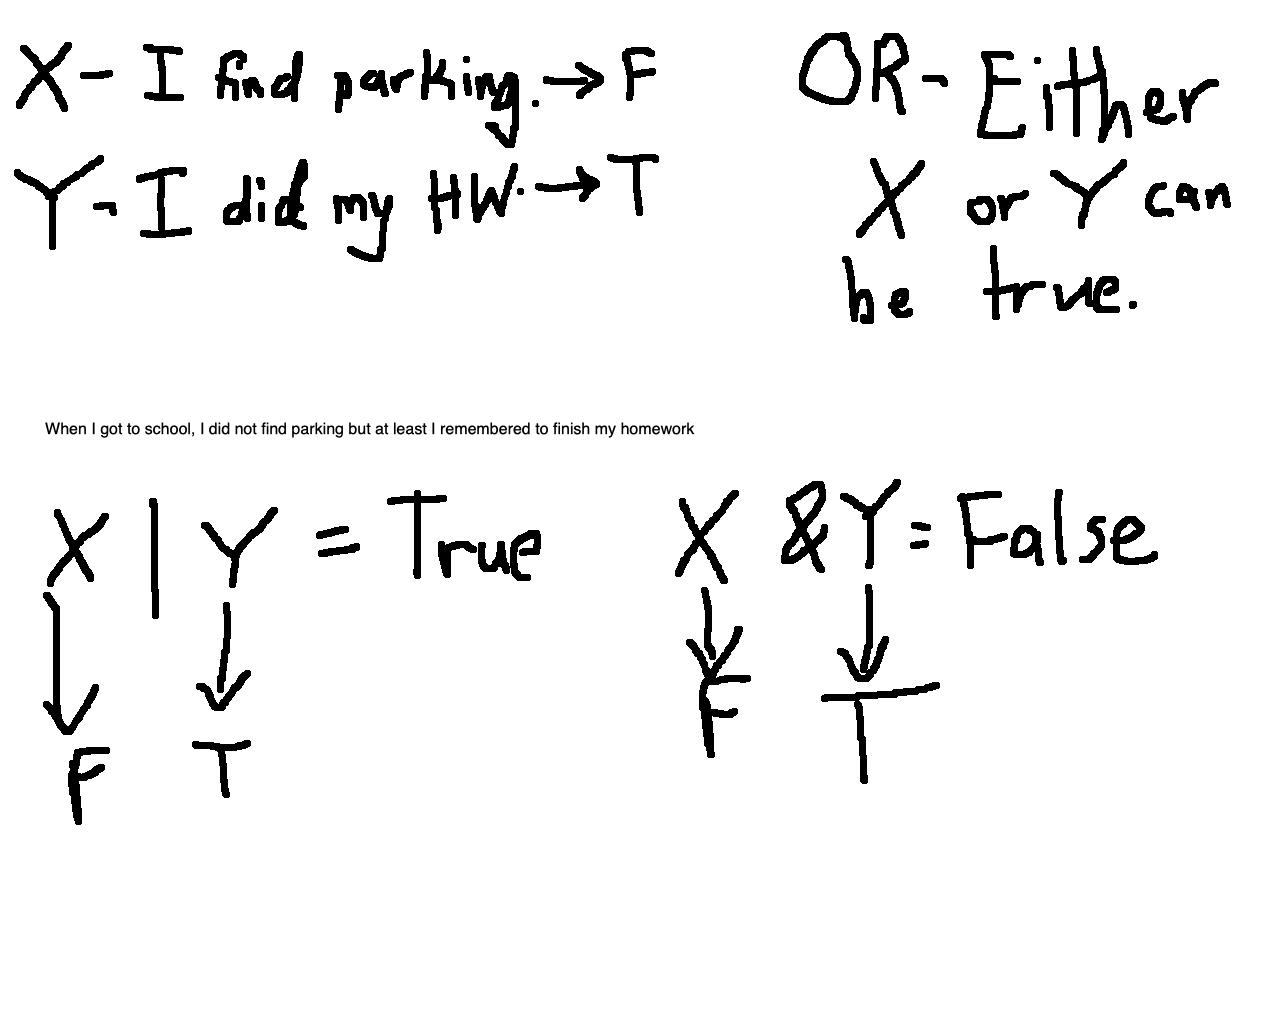 X - I find parking. → F
Y - I did my HW. → T
OR - Either
X or Y can
be true.
When I got to school, I did not find parking but at least I remembered to finish my homework
X | Y = True
F T
X & Y = False
F T